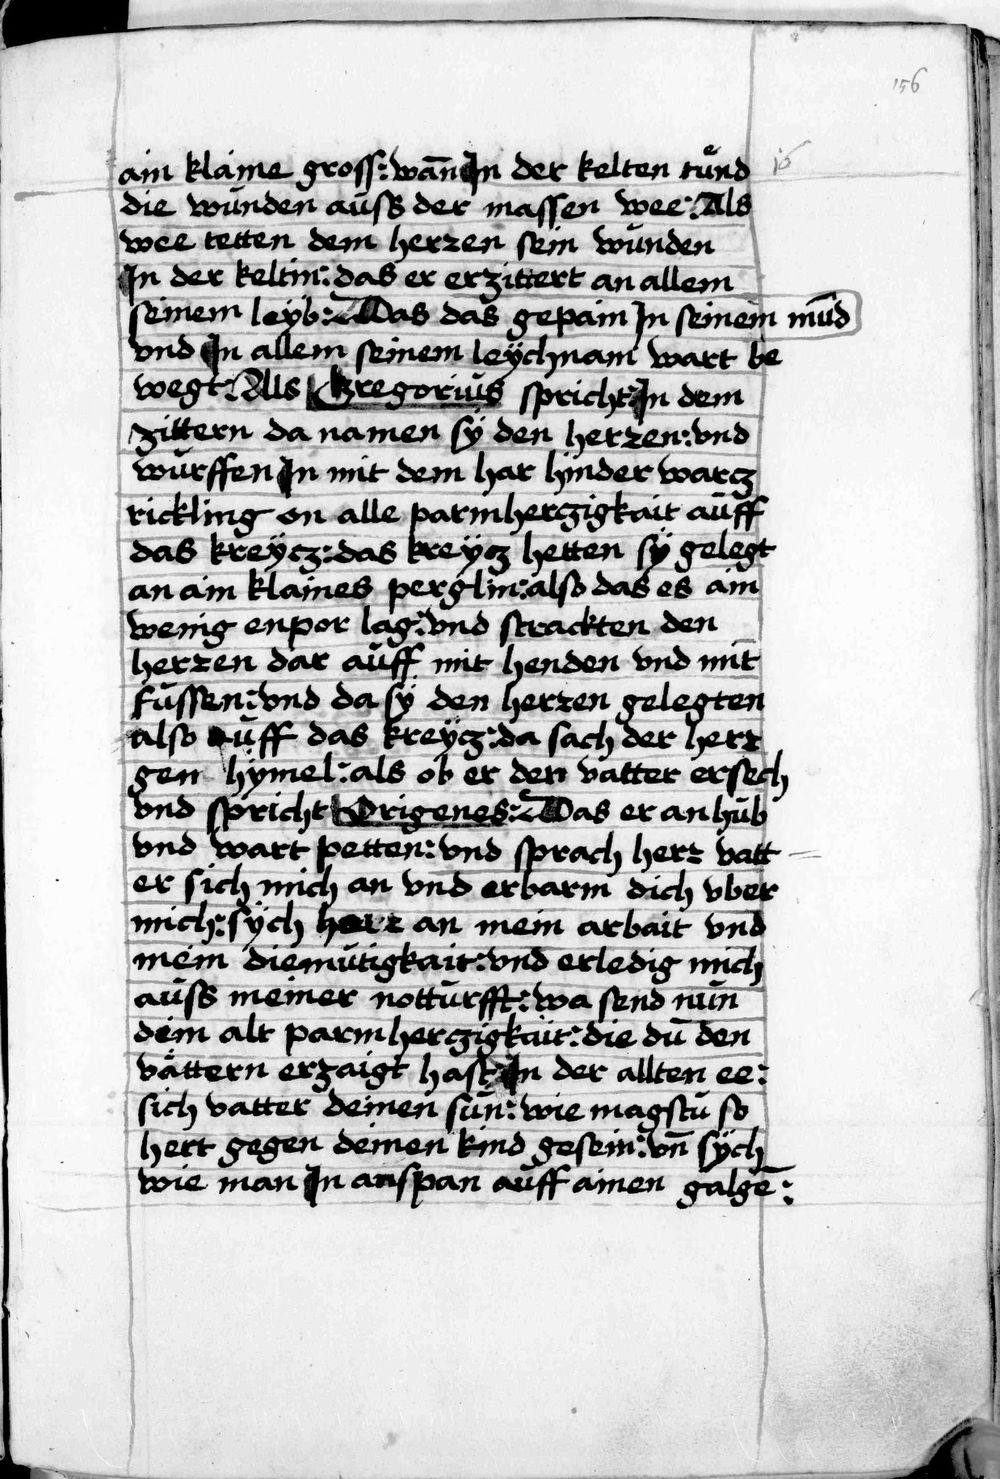 156
16
ain klaine gross: wan̄ In der kelten tuͤnd
die wunden auss der massen wee: Als
wee tetten dem herzen sein wunden
In der keltin: das er erzittert an allem
seinem leyb: Das das gepain In seinem mūd
vnd In allem seinem leÿchnam wart be
wegt: Als Gregorius spricht: In dem
zittern da namen sÿ den herzen: vnd
wurffen In mit dem har hinder warcz
rickling on alle parmherczigkait auff
das kreÿcz: das kreÿcz hetten sÿ gelegt
an ain klaines perglin: also das es ain
wenig enpor lag: vnd strackten den
herzen dar auff mit henden vnd mit
fussen: vnd da sÿ den herzen gelegten
also auff das kreÿcz: da sach der herr
gen hymel: als ob er den vatter ersech
vnd spricht Origenes: Das er anhub
vnd wart petten: vnd sprach herz vatt
er sich mich an vnd erbarm dich vber
mich: sÿch herz an mein arbait vnd
mein diemutigkait: vnd erledig mich
auss meiner notturfft: wa send nun
dein alt parmherczigkait: die du den
vättern erzaigt hast In der allten ee:
sich vatter deinen sun: wie magstu so
hert gegen deinen kind gesein: vn̄ sÿch
wie man In anspan auff ainen galgē: